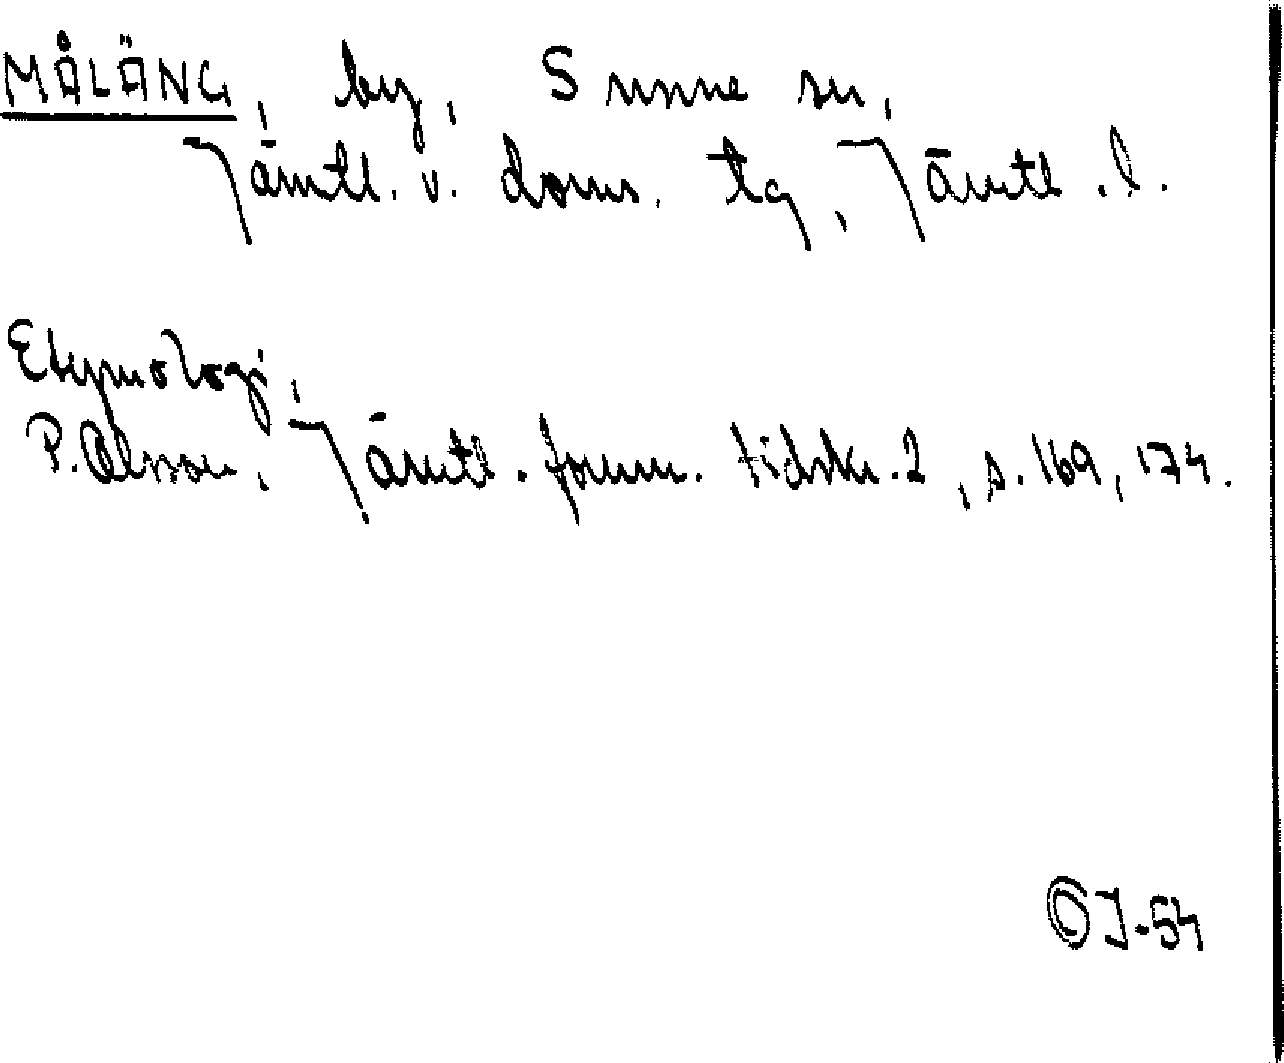 MÅLÄNG, by, Sunne sn,
Jämtl. v. doms. tg, Jämtl. l.
Etymologi,
P. Olsson, Jämtl. fornm. tidskr. 2, s. 169, 174.
OJ-54